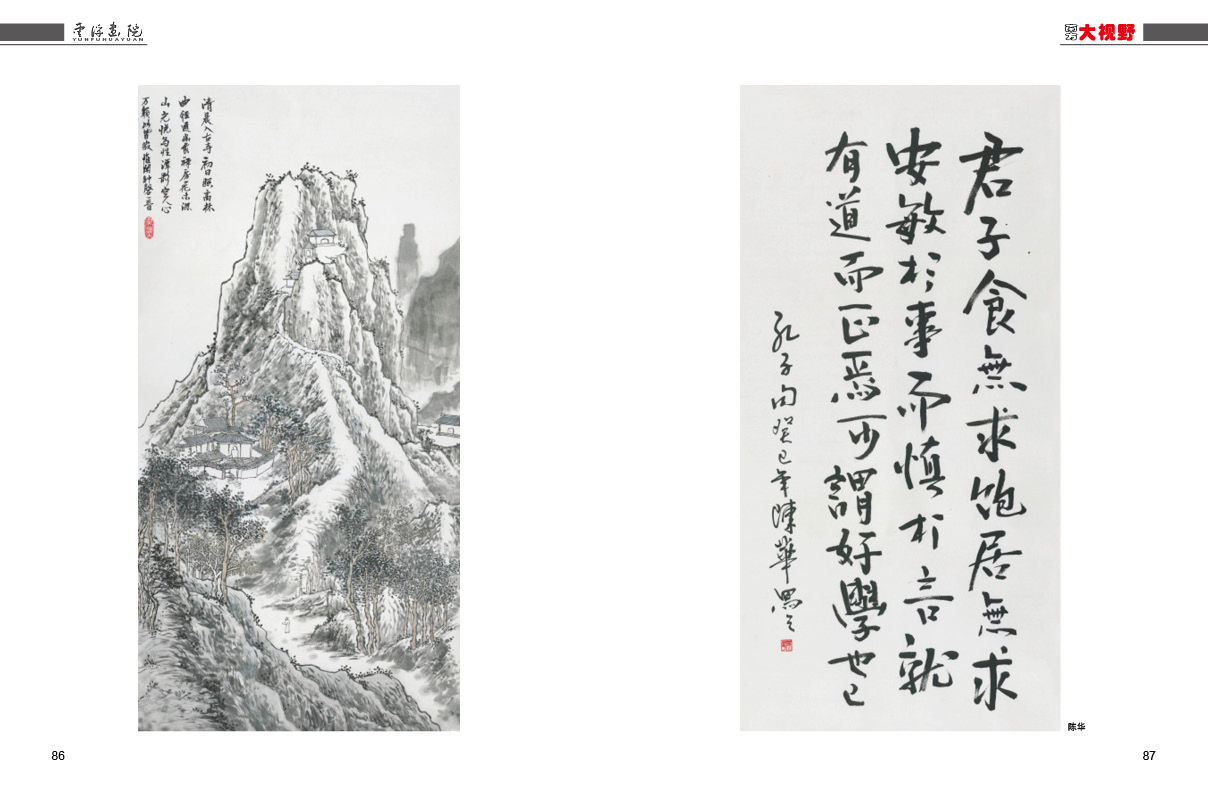 雲浮畫院
YUNFUHUAYUAN
大视野
清晨入古寺初日照高林
曲徑通幽處禅房花木深
山光悦鸟性潭影空人心
万籁此皆寂惟闻钟磬音
君子食無求飽居無求
安敏於事而慎於言就
有道而正焉可謂好學也已
孔子句癸巳年陳華
陈华
86
87